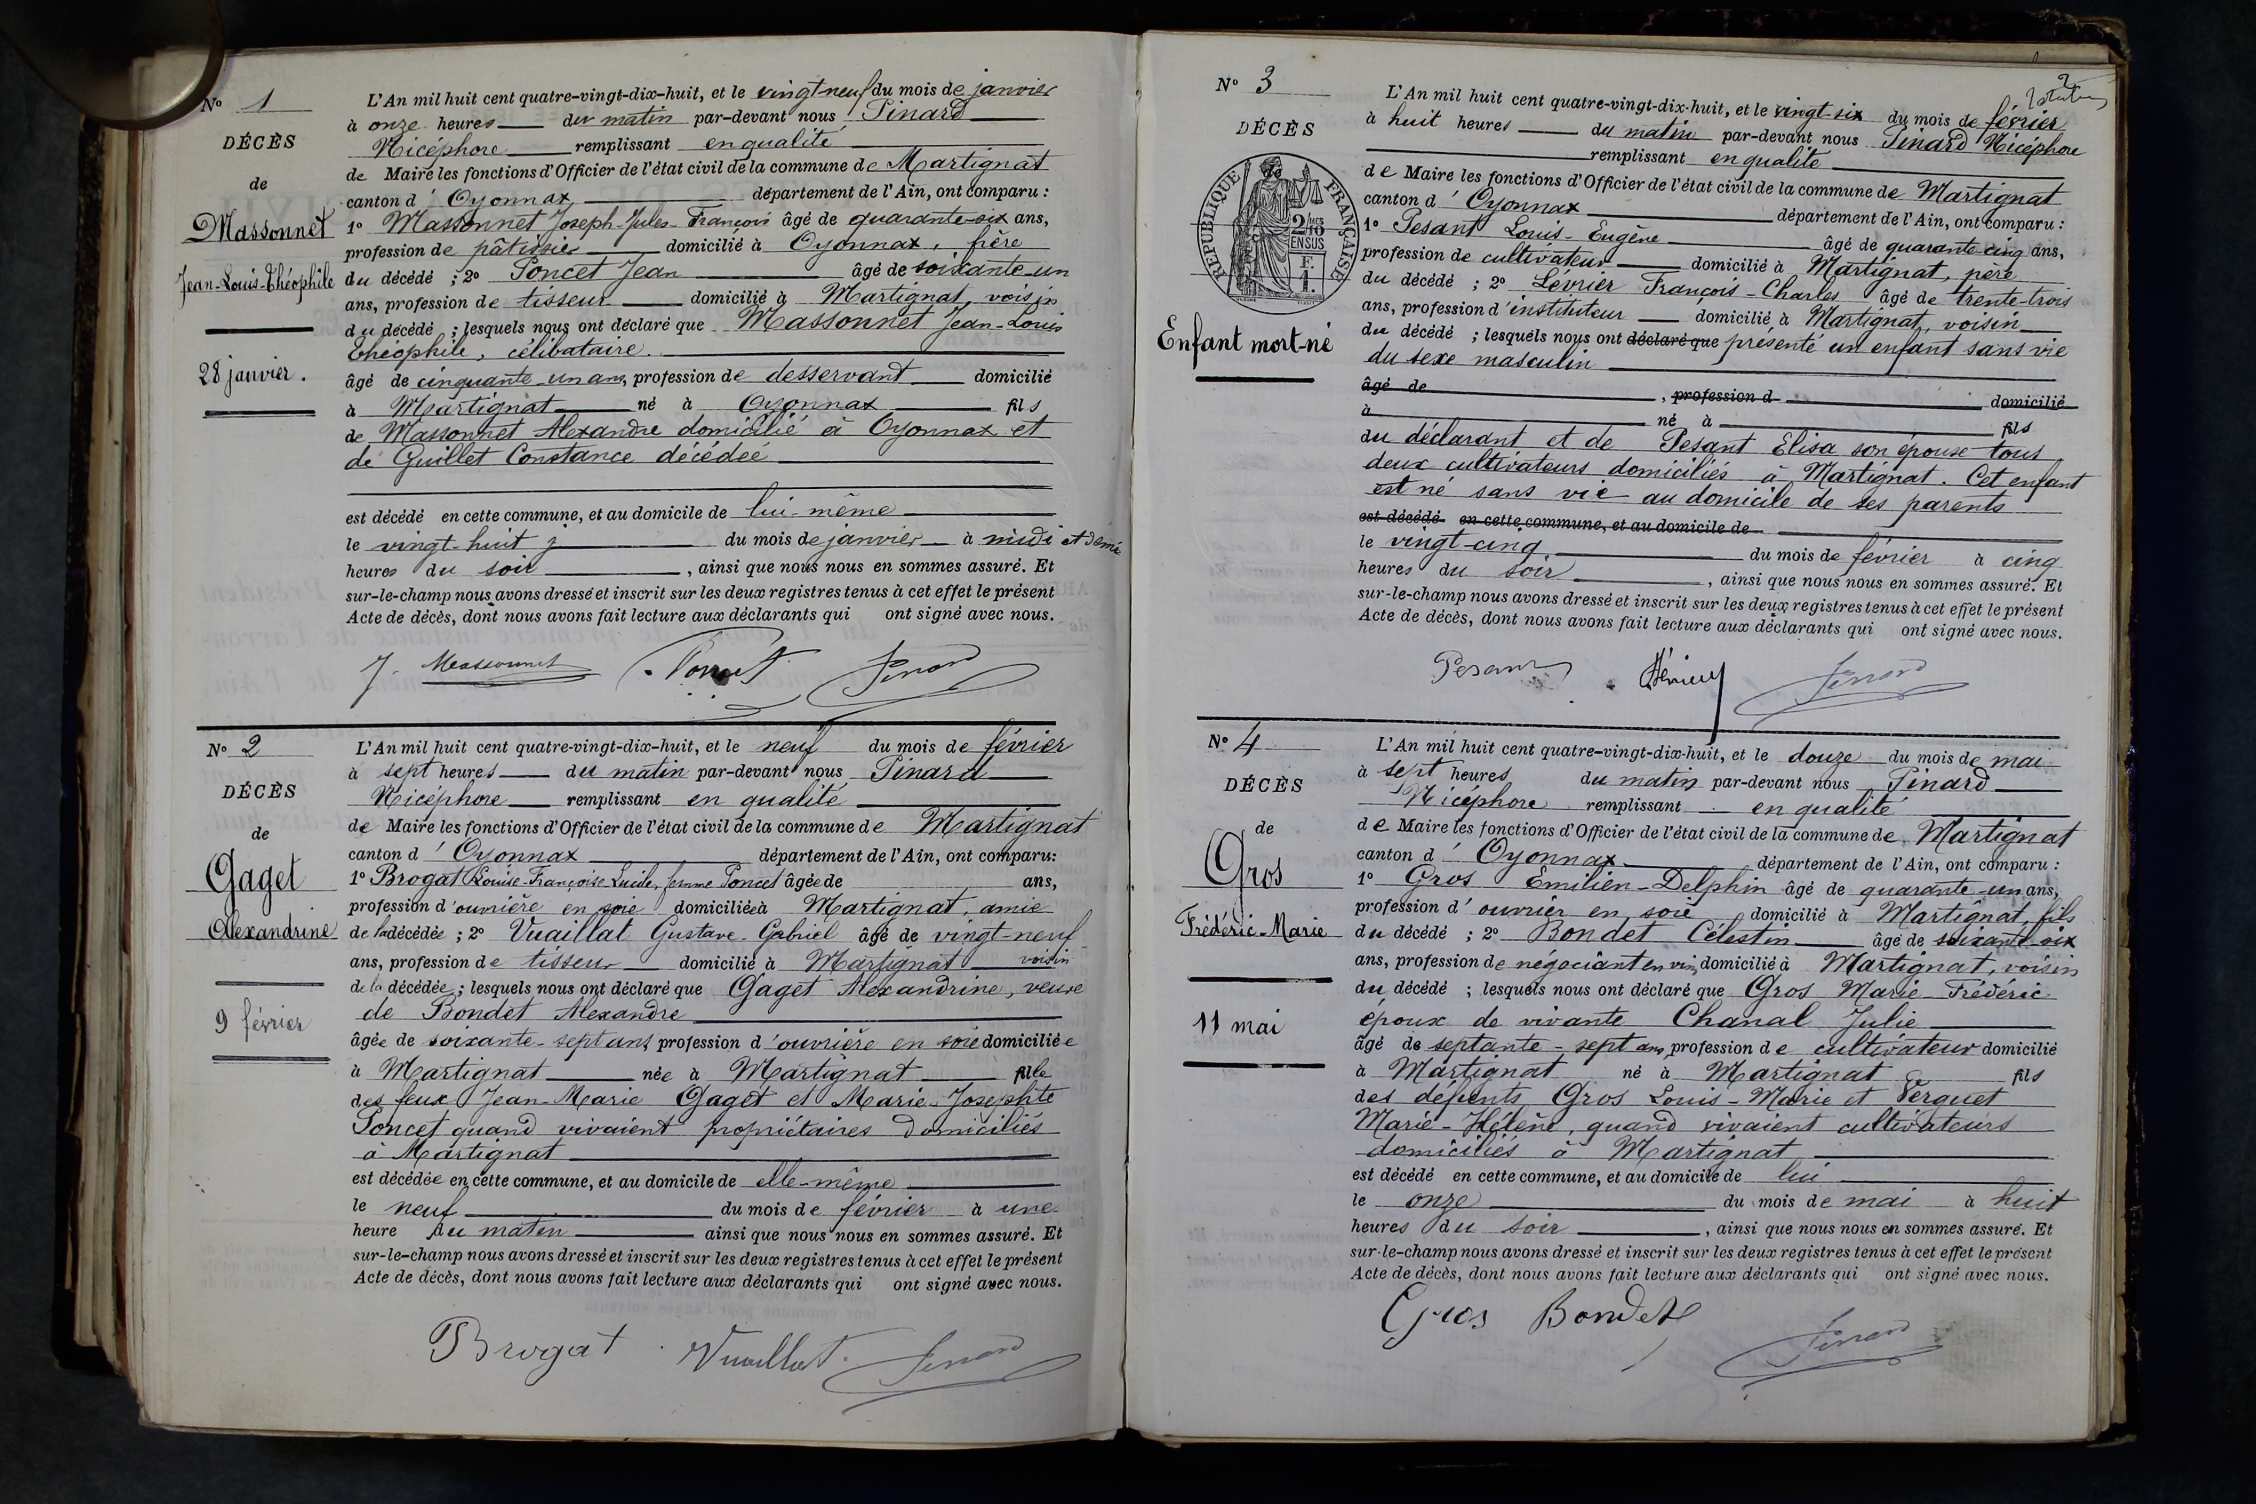 N° 1
DÉCÈS
de
Massonnet
Jean-Louis-Théophile
28 janvier.
L'An mil huit cent quatre-vingt-dix-huit, et le vingt neuf du mois de janvier
à onze heures du matin par-devant nous Pinard
Nicéphore remplissant en qualité
de Maire les fonctions d'Officier de l'état civil de la commune de Martignat
canton d'Oyonnax département de l'Ain, ont comparu :
1° Massonnet Joseph-Jules-François âgé de quarante-six ans,
profession de pâtissier domicilié à Oyonnax, frère
du décédé ; 2° Poncet Jean âgé de soixante-un
ans, profession de tisseur domicilié à Martignat, voisin
du décédé ; lesquels nous ont déclaré que Massonnet Jean-Louis
Théophile, célibataire.
âgé de cinquante-un ans, profession de desservant domicilié
à Martignat né à Oyonnax fils
de Massonnet Alexandre domicilié à Oyonnax et
de Guillet Constance décédée
est décédé en cette commune, et au domicile de lui-même
le vingt-huit du mois de janvier à midi et demie
heures du soir, ainsi que nous nous en sommes assuré. Et
sur-le-champ nous avons dressé et inscrit sur les deux registres tenus à cet effet le présent
Acte de décès, dont nous avons fait lecture aux déclarants qui ont signé avec nous.
J. Massonnet Poncet Pinard
N° 2
DÉCÈS
de
Gaget
Alexandrine
9 février
L'An mil huit cent quatre-vingt-dix-huit, et le neuf du mois de février
à sept heures du matin par-devant nous Pinard
Nicéphore remplissant en qualité
de Maire les fonctions d'Officier de l'état civil de la commune de Martignat
canton d'Oyonnax département de l'Ain, ont comparu:
1° Brogat Louise-Françoise Lucile, femme Poncet âgée de ans,
profession d'ouvrière en soie domiciliée à Martignat, amie
de la décédée ; 2° Vuaillat Gustave-Gabriel âgé de vingt-neuf
ans, profession de tisseur domicilié à Martignat voisin
de la décédée ; lesquels nous ont déclaré que Gaget Alexandrine, veuve
de Bondet Alexandre
âgée de soixante-sept ans, profession d'ouvrière en soie domiciliée
à Martignat née à Martignat fille
des feux Jean-Marie Gaget et Marie-Josephte
Poncet quand vivaient propriétaires domiciliés
à Martignat
est décédée en cette commune, et au domicile de elle-même
le neuf du mois de février à une
heure du matin ainsi que nous nous en sommes assuré. Et
sur-le-champ nous avons dressé et inscrit sur les deux registres tenus à cet effet le présent
Acte de décès, dont nous avons fait lecture aux déclarants qui ont signé avec nous.
Brogat Vuaillat Pinard
N° 3
DÉCÈS
RÉPUBLIQUE FRANÇAISE
2/10 EN SUS
F. 1.
Enfant mort-né
L'An mil huit cent quatre-vingt-dix-huit, et le vingt-six du mois de février
à huit heures du matin par-devant nous Pinard Nicéphore
remplissant en qualité
de Maire les fonctions d'Officier de l'état civil de la commune de Martignat
canton d'Oyonnax département de l'Ain, ont comparu :
1° Pesant Louis-Eugène âgé de quarante-cinq ans,
profession de cultivateur domicilié à Martignat, père
du décédé ; 2° Lévrier François-Charles âgé de trente-trois
ans, profession d'instituteur domicilié à Martignat, voisin
du décédé ; lesquels nous ont déclaré que présenté un enfant sans vie
du sexe masculin
âgé de , profession d domicilié
à né à fils
du déclarant et de Pesant Elisa son épouse tous
deux cultivateurs domiciliés à Martignat. Cet enfant
est né sans vie au domicile de ses parents
est décédé en cette commune, et au domicile de
le vingt-cinq du mois de février à cinq
heures du soir, ainsi que nous nous en sommes assuré. Et
sur-le-champ nous avons dressé et inscrit sur les deux registres tenus à cet effet le présent
Acte de décès, dont nous avons fait lecture aux déclarants qui ont signé avec nous.
Pesant Lévrier Pinard
N° 4
DÉCÈS
de
Gros
Frédéric-Marie
11 mai
L'An mil huit cent quatre-vingt-dix-huit, et le douze du mois de mai
à sept heures du matin par-devant nous Pinard
Nicéphore remplissant en qualité
de Maire les fonctions d'Officier de l'état civil de la commune de Martignat
canton d'Oyonnax département de l'Ain, ont comparu :
1° Gros Emilien-Delphin âgé de quarante-un ans,
profession d'ouvrier en soie domicilié à Martignat, fils
du décédé ; 2° Bondet Célestin âgé de soixante-six
ans, profession de négociant en vin, domicilié à Martignat, voisin
du décédé ; lesquels nous ont déclaré que Gros Marie-Frédéric
époux de vivante Chanal Julie
âgé de septante-sept ans, profession de cultivateur domicilié
à Martignat né à Martignat fils
des défunts Gros Louis-Marie et Verguet
Marie-Hélène, quand vivaient cultivateurs
domiciliés à Martignat
est décédé en cette commune, et au domicile de lui
le onze du mois de mai à huit
heures du soir, ainsi que nous nous en sommes assuré. Et
sur-le-champ nous avons dressé et inscrit sur les deux registres tenus à cet effet le présent
Acte de décès, dont nous avons fait lecture aux déclarants qui ont signé avec nous.
Gros Bondet Pinard